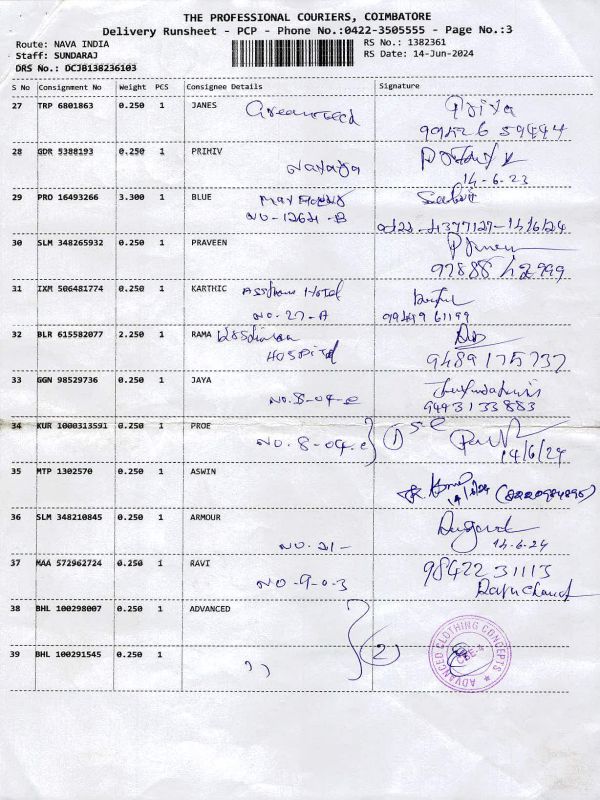 THE PROFESSIONAL COURIERS, COIMBATORE
Delivery Runsheet - PCP - Phone No.:0422-3505555 - Page No.:3
Route: NAVA INDIA
RS No.: 1382361
Staff: SUNDARAJ
RS Date: 14-Jun-2024
DRS No.: DCJB138236103
S No Consignment No Weight PCS Consignee Details Signature
27 TRP 6801863 0.250 1 JANES Priya
99526 59444
28 GDR 5388193 0.250 1 PRIMIV
14-6-23
29 PRO 16493266 3.300 1 BLUE
NO-1262-B
0422-4377127-14/6/24
30 SLM 348265932 0.250 1 PRAVEEN
97888 42999
31 IXM 506481774 0.250 1 KARTHIC Hotel
NO.27-A 99449 61199
32 BLR 615582077 2.250 1 RAMA
HOSPITAL 9489175737
33 GGN 98529736 0.250 1 JAYA
NO.8-04-e 9443133883
34 KUR 1000313591 0.250 1 PROE
NO.8-04.e 1 14/6/24
35 MTP 1302570 0.250 1 ASWIN
36 SLM 348210845 0.250 1 ARMOUR
NO.21- 14-6-24
37 MAA 572962724 0.250 1 RAVI 98422 31113
NO-9-0-3
38 BHL 100298007 0.250 1 ADVANCED
2
39 BHL 100291545 0.250 1 ,,
ADVANCED CLOTHING CONCEPTS
CBE-4